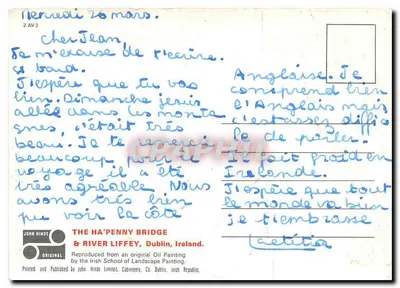 Mercredi 26 mars.
2 AV 3
Cher Jean,
Je m'excuse de t'ecrire
si tard.
J'espère que tu vas
bien. Dimanche je suis
allée dans les monta
gnes, c'était très
beau. Je te remercie
beaucoup pour le
voyage il a été
très agréable. Nous
avons très bien
pu voir la côte
Anglaise. Je
comprend bien
l'Anglais mais
c'est assez diffici
le de parler.
Il fait froid en
Irelande.
J'espère que tout
le monde va bien
je t'embrasse
Laetitia
JOHN HINDE
ORIGINAL
THE HA'PENNY BRIDGE
& RIVER LIFFEY, Dublin, Ireland.
Reproduced from an original Oil Painting
by the Irish School of Landscape Painting.
Printed and Published by John Hinde Limited, Cabinteely, Co. Dublin, Irish Republic.